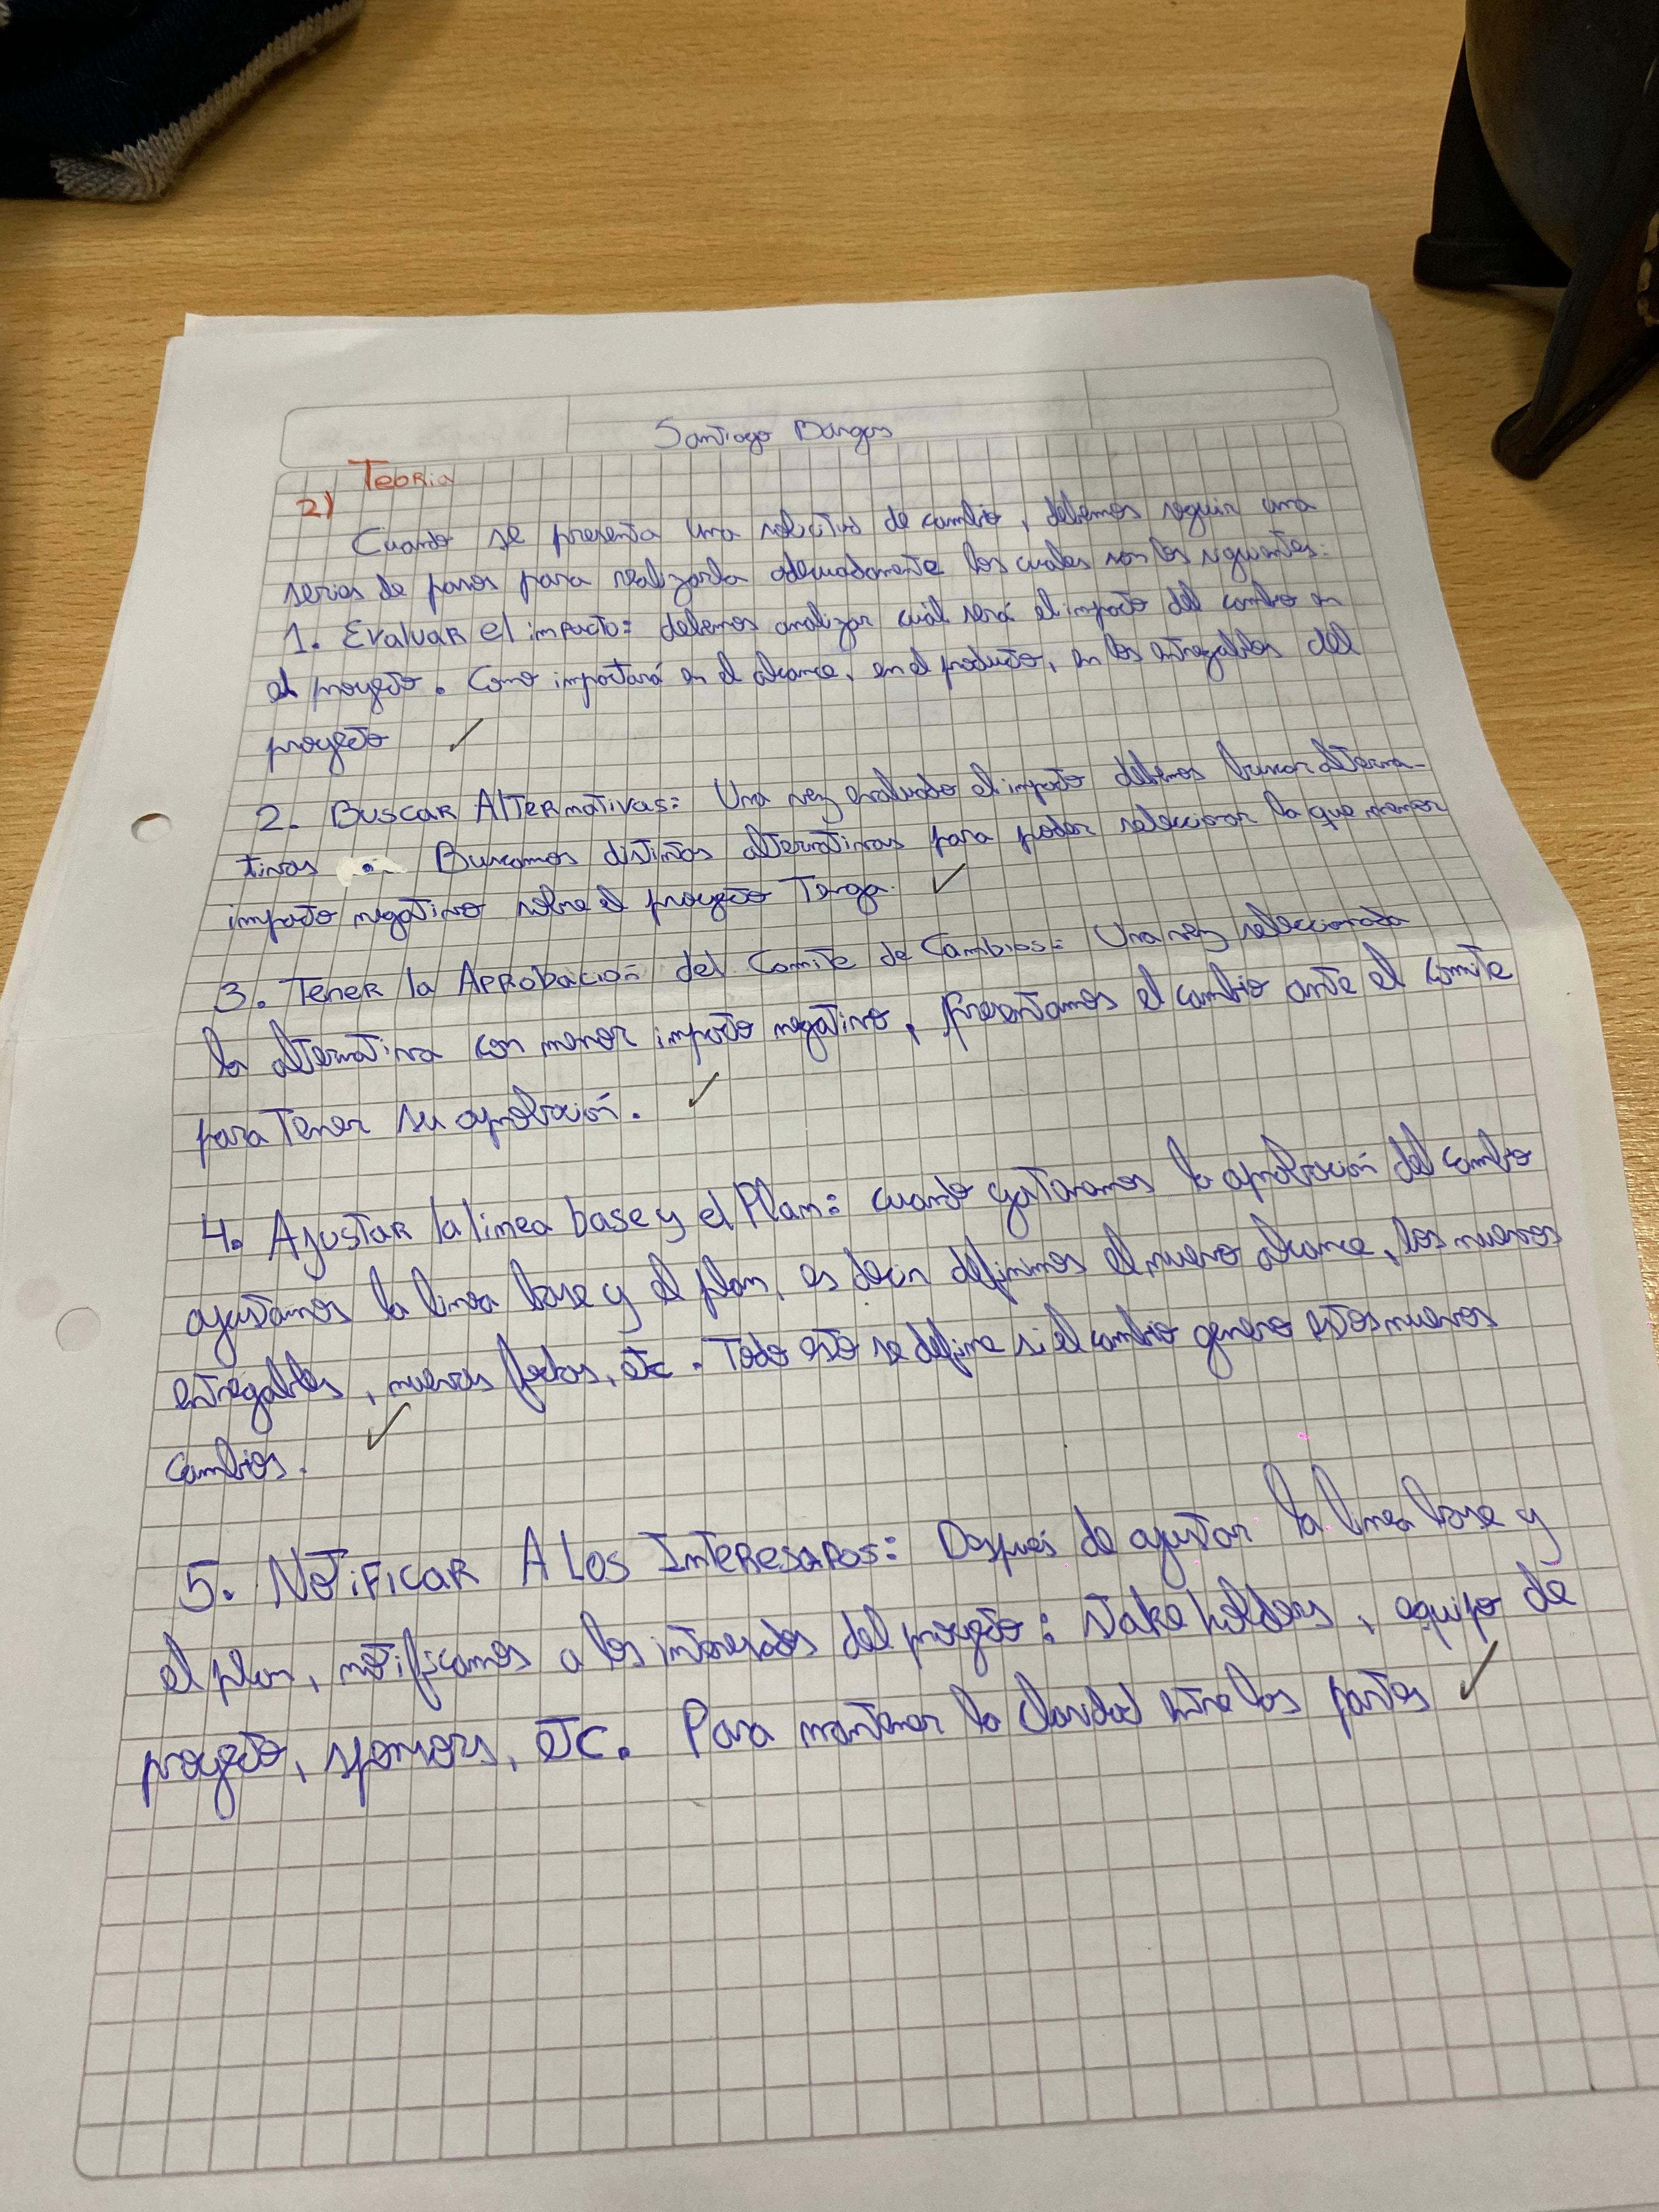 Santiago Bargas
Teoria
2)
Cuando se presenta una solicitud de cambio, debemos seguir una
series de pasos para realizarla adecuadamente los cuales son los siguientes:
1. Evaluar el impacto: debemos analizar cuál será el impacto del cambio en
el proyecto. Como impactará en el alcance, en el producto, en los entregables del
proyecto
2. Buscar Alternativas: Una vez evaluado el impacto debemos buscar alterna-
tivas. Buscamos distintas alternativas para poder seleccionar la que menor
impacto negativo sobre el proyecto Tenga.
3. Tener la Aprobación del Comite de Cambios: Una vez seleccionada
la alternativa con menor impacto negativo, presentamos el cambio ante el comite
para Tener su aprobación.
4. Ajustar la linea base y el Plan: cuando ya tenemos la aprobación del cambio
ajustamos la linea base y el plan, es decir definimos el nuevo alcance, los nuevos
entregables, nuevas fechas, etc. Todo esto se define si el cambio genero estos nuevos
cambios.
5. Notificar A los Interesados: Después de ajustar la linea base y
el plan, notificamos a los interesados del proyecto: Stakeholders, equipo de
proyecto, sponsors, etc. Para mantener la claridad entre las partes